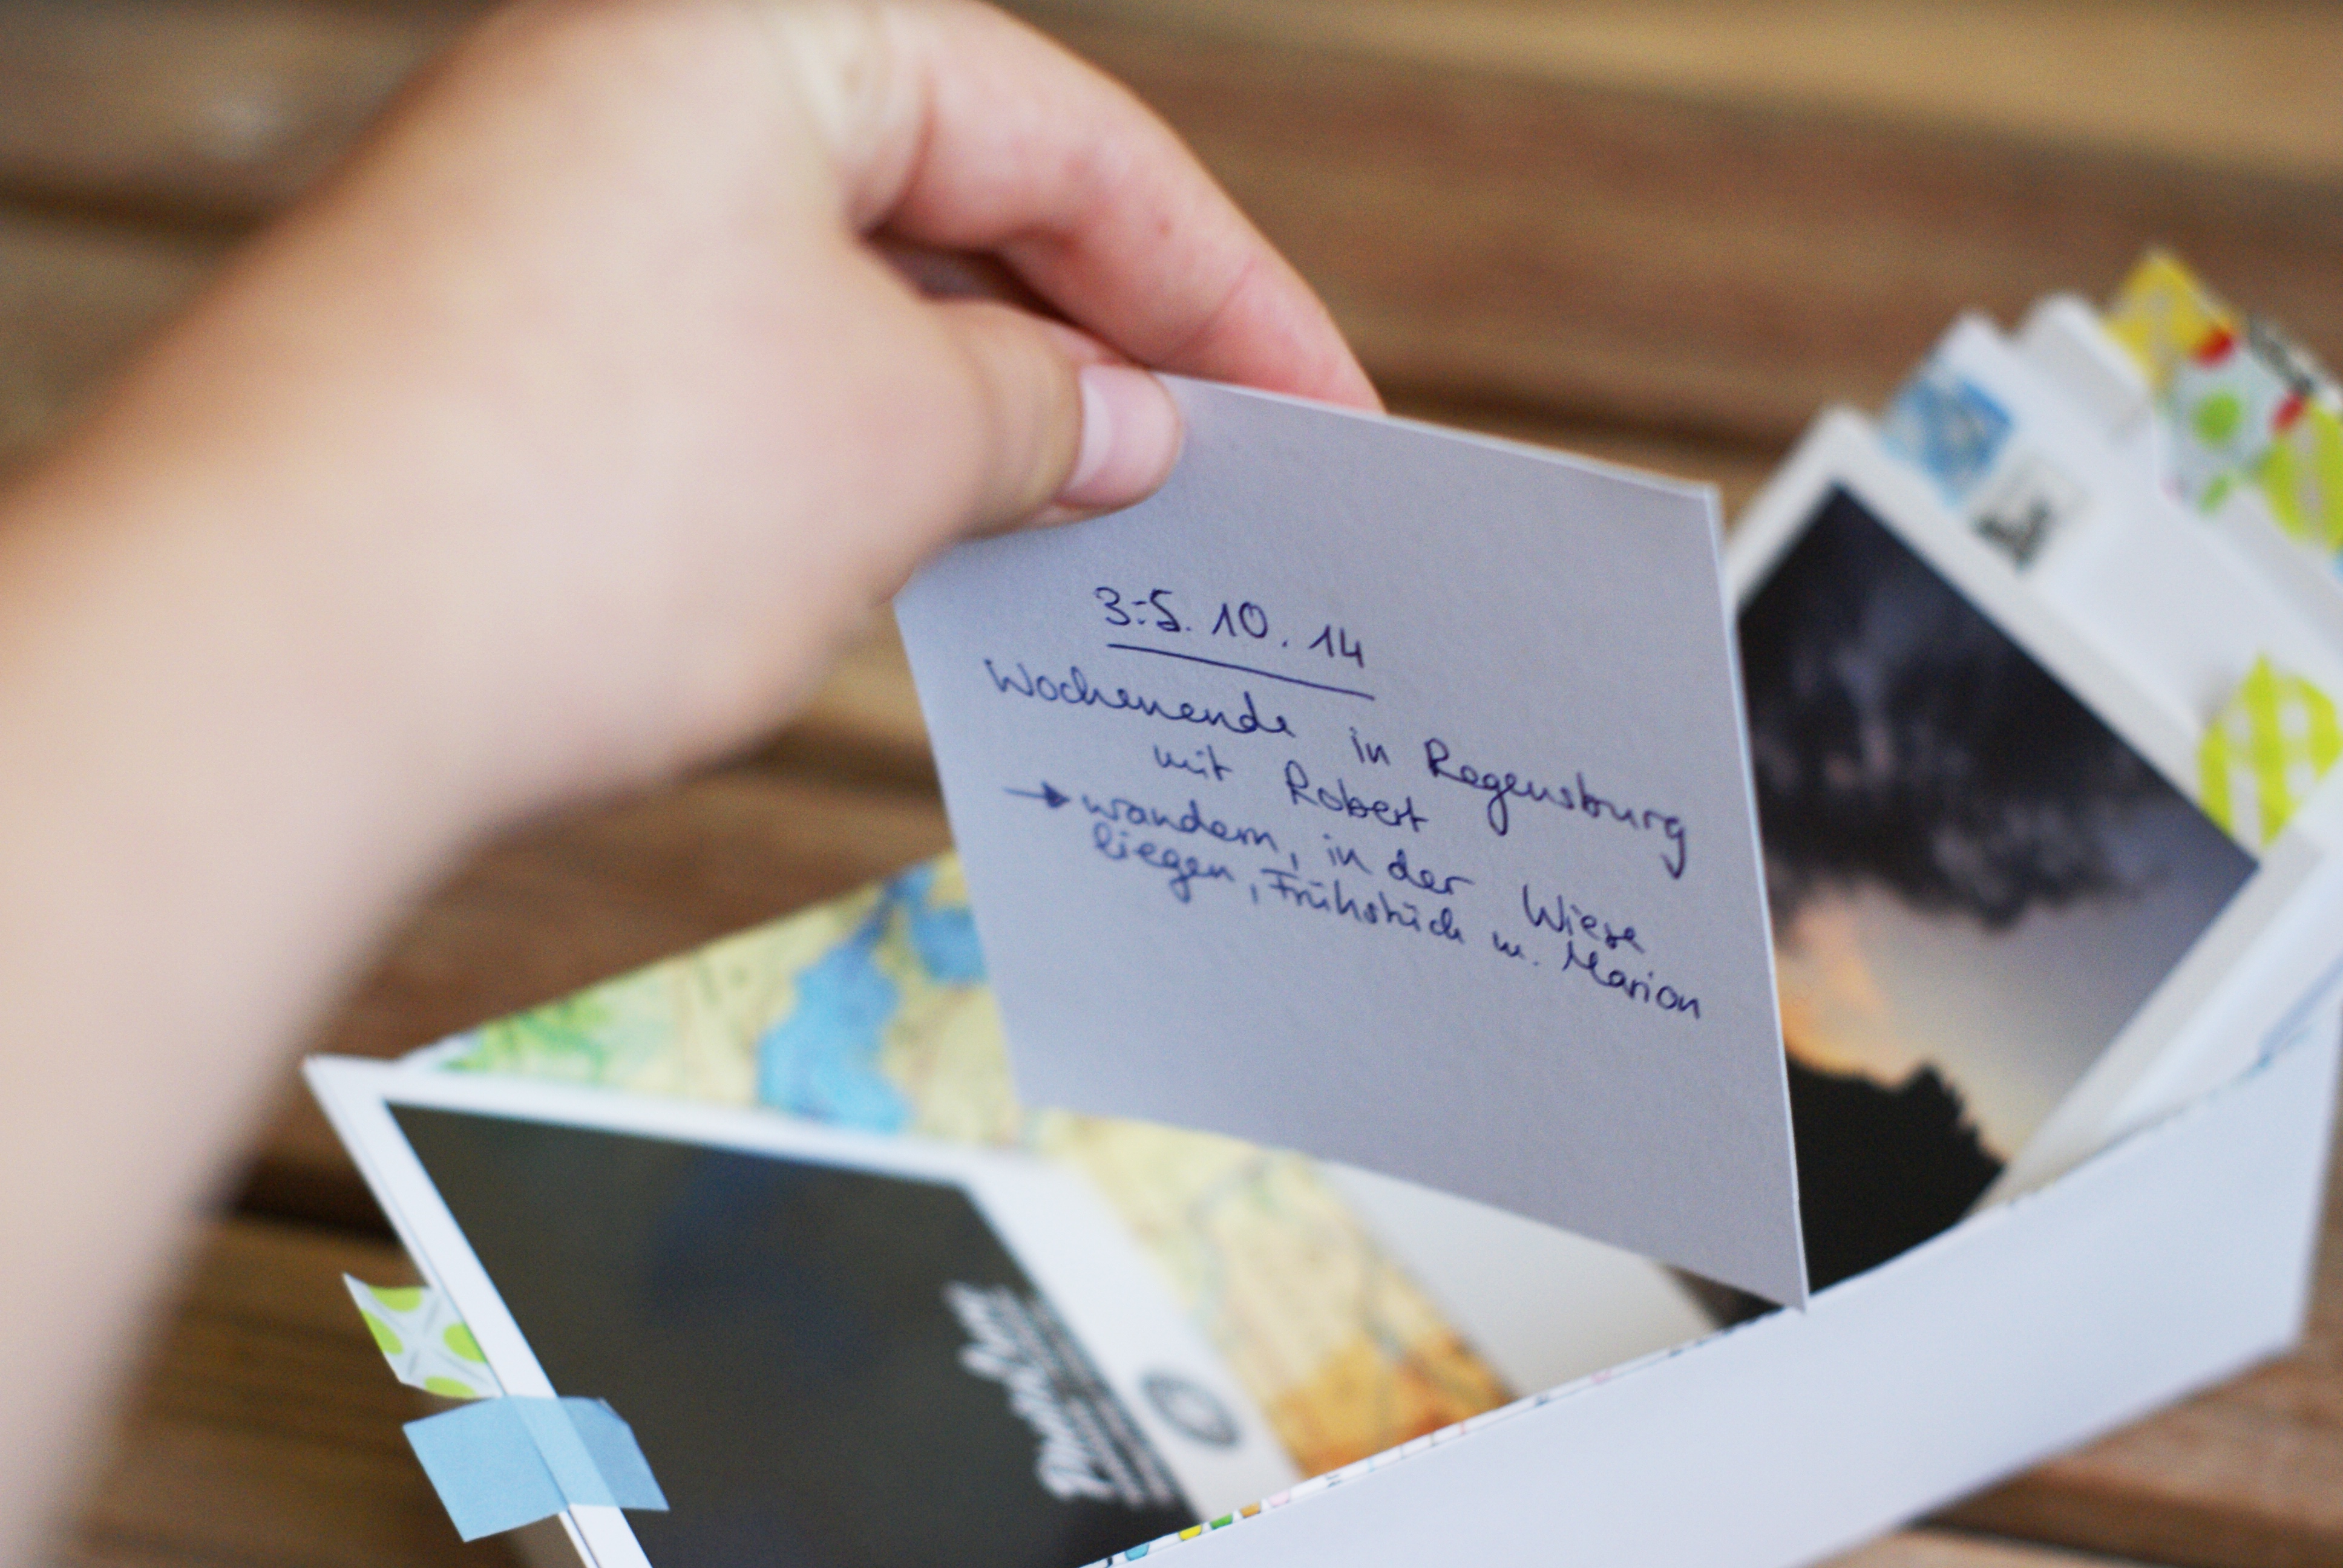 3.-5. 10. 14
Wochenende in Regensburg
mit Robert
→ wandern, in der Wiese
liegen, Frühstück m. Marion